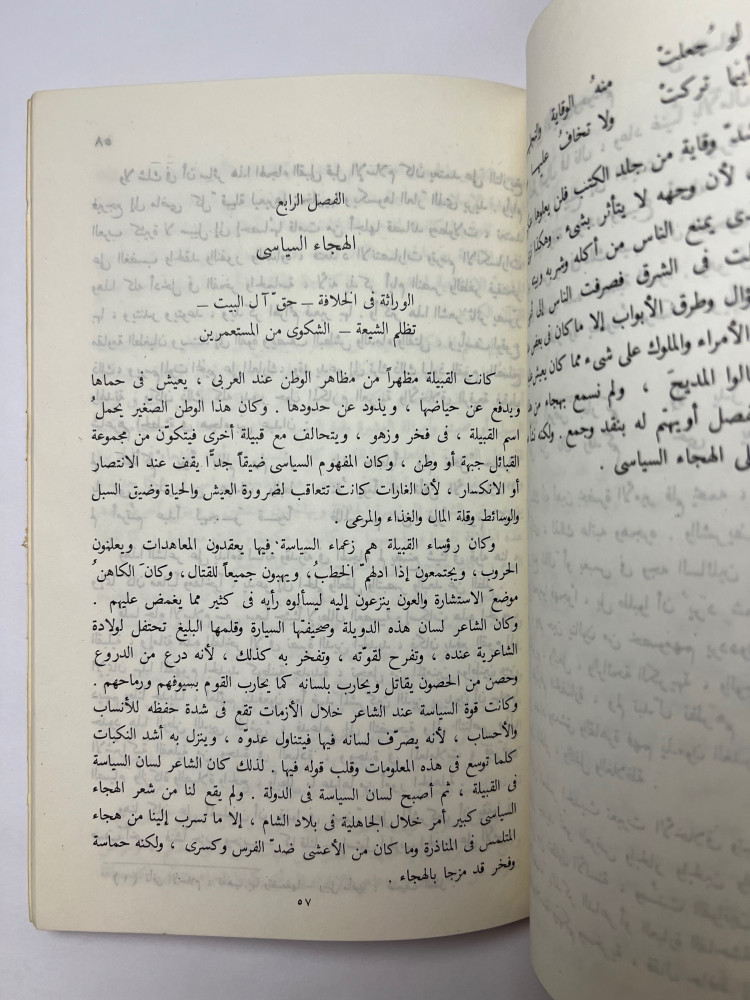 لو جعلت
أينما تركت
منه الوقاية
ولا تخاف عليها
وقاية من جلد الكتب فلن يعلوها
لأن وجهه لا يتأثر بشيء . وهكذا
يمنع الناس من أكله وشربه
فى الشرق فصرفت الناس إلى
وطرق الأبواب إلا ما كان فى بعض
الأمراء والملوك على شيء مما كان
المديح ، ولم نسمع بهجاء من
أو يهتم له بنقد وجمع . ولكنه
الهجاء السياسى .
٥٨
الفصل الرابع
الهجاء السياسى
الوراثة فى الخلافة – حقّ آل البيت –
تظلم الشيعة – الشكوى من المستعمرين
كانت القبيلة مظهراً من مظاهر الوطن عند العربى ، يعيش فى حماها
ويدفع عن حياضها ، ويذود عن حدودها . وكان هذا الوطن الصّغير يحملُ
اسم القبيلة ، فى فخر وزهو ، ويتحالف مع قبيلة أخرى فيتكوّن من مجموعة
القبائل جبهة أو وطن ، وكان المفهوم السياسى ضيقاً جدًّا يقف عند الانتصار
أو الانكسار ، لأن الغارات كانت تتعاقب لضرورة العيش والحياة وضيق السبل
والوسائط وقلة المال والغذاء والمرعى .
وكان رؤساء القبيلة هم زعماء السياسة فيها يعقدون المعاهدات ويعلنون
الحروب، ويجتمعون إذا ادلهمّ الخطبُ، ويهبون جميعاً للقتال، وكانَ الكاهنُ
موضعَ الاستشارة والعون ينزعون إليه ليسألوه رأيه فى كثير مما يغمض عليهم .
وكان الشاعر لسان هذه الدويلة وصحيفتها السيارة وقلمها البليغ تحتفل لولادة
الشاعرية عنده ، وتفرح لقوّته ، وتفخر به كذلك ، لأنه درع من الدروع
وحصن من الحصون يقاتل ويحارب بلسانه كما يحارب القوم بسيوفهم ورماحهم .
وكانت قوة السياسة عند الشاعر خلال الأزمات تقع فى شدة حفظه للأنساب
والأحساب ، لأنه يصرّف لسانه فيها فيتناول عدوّه ، وينزل به أشد النكبات
كلما توسع فى هذه المعلومات وقلب قوله فيها . لذلك كان الشاعر لسان السياسة
فى القبيلة ، ثم أصبح لسان السياسة فى الدولة . ولم يقع لنا من شعر الهجاء
السياسى كبير أمر خلال الجاهلية فى بلاد الشام ، إلا ما تسرب إلينا من هجاء
المتلمس فى المناذرة وما كان من الأعشى ضدّ الفرس وكسرى ، ولكنه حماسة
وفخر قد مزجا بالهجاء .
٥٧